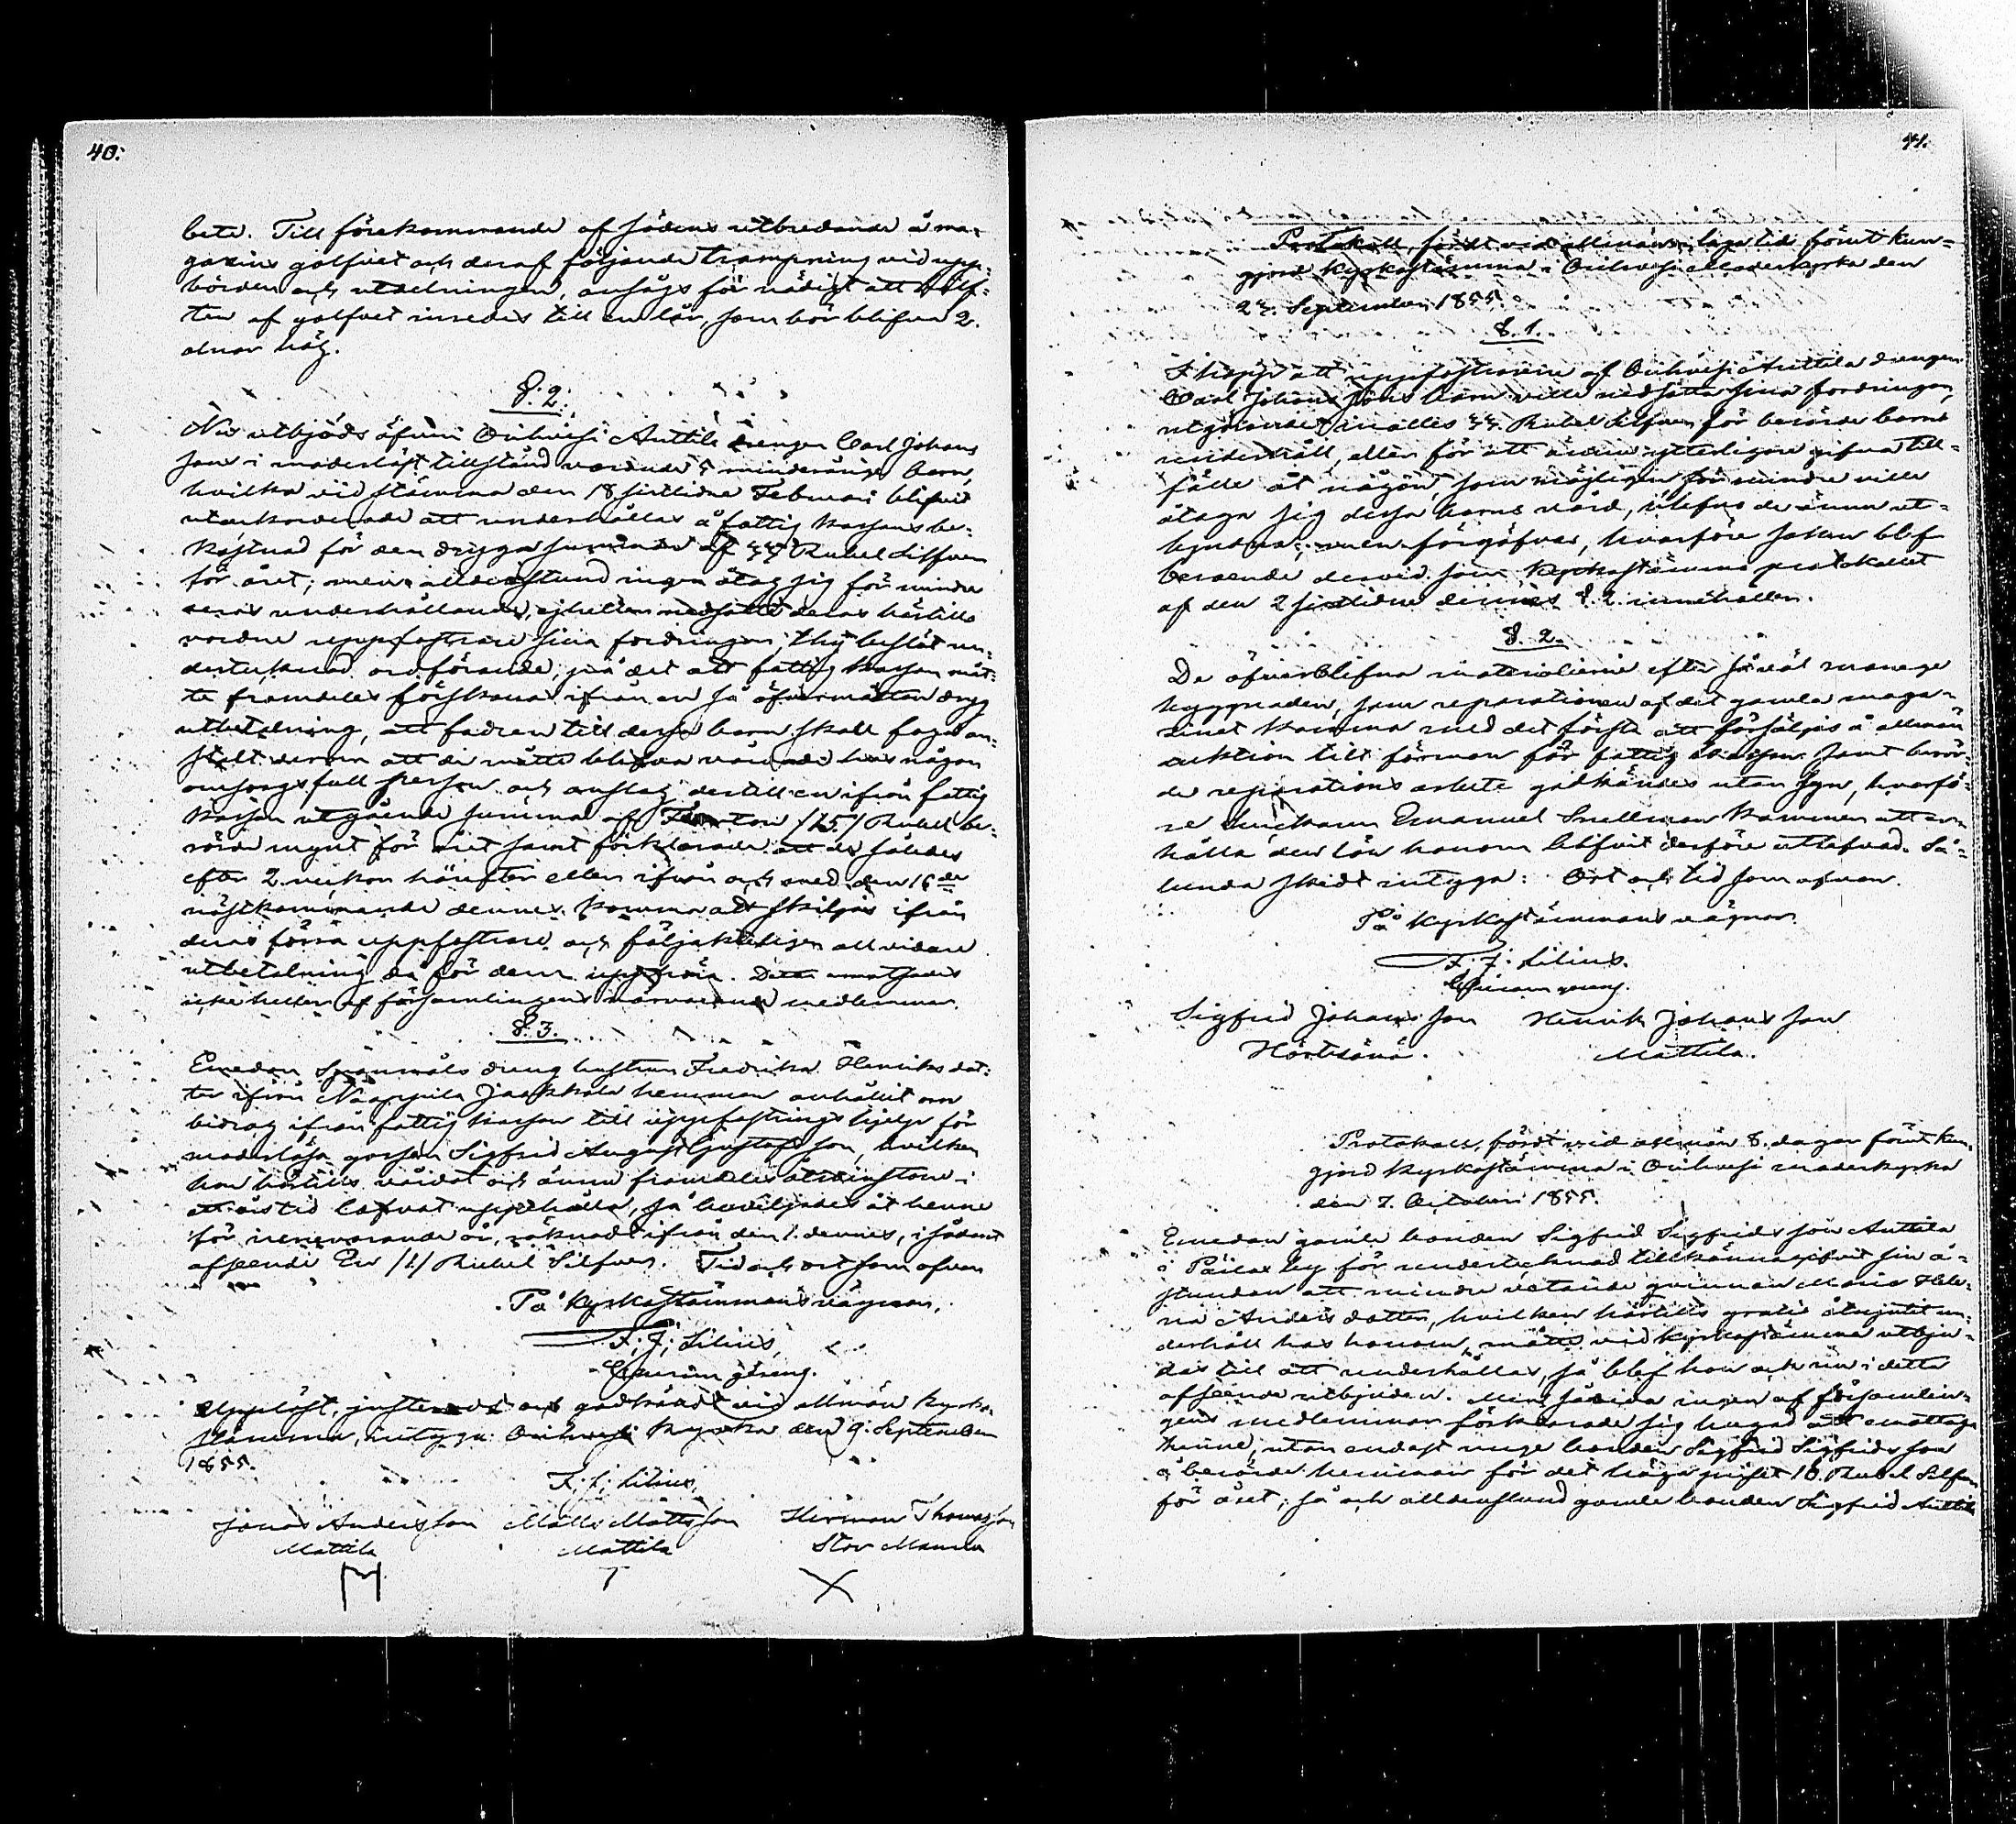 40.
bete. Till förekommande af sädens utbredande å ma-
gazins golfvet och deraf följande trampning vid upp-
börden och utdelningen, ansågs för nödigt att hälf-
ten af golfvet inredes till en lår, som bör blifva 2.
alnar hög.
§. 2.
Nu utbjöds äfven Ouhvesi Anttila drengen Carl Johans
son i moderlöst tillstånd varande 5 minderåriga barn,
hvilka vid stämma den 18 sistlidne Februari blifvit
utackorderade att underhållas å fattig kassans be-
kostnad för den dryga summan af 55 Rubel Silfver
för året; men alldenstund ingen åtog sig för mindre
deras underhållande, ejheller nedsatte deras härtills
vordne uppfostrare sina fordringar; thy beslöt un-
dertecknad ordförande, på det att fattig kassan måt-
te framdeles förskonas ifrån en så öfvermåttan dryg
utbetalning, att fadren till dessa barn skall foga an-
stalt derom att de måtte blifva vårdade hos någon
omsorgsfull person och anslog dertill en ifrån fattig
kassan utgående summa af Femton /15/ Rubel be-
rörde mynt för året samt förklarade att de således
efter 2. veckor härefter eller ifrån och med den 16de
nästkommande dennes komma att skiljas ifrån
deras förra uppfostrare och följakteligen all vidare
utbetalning då för dem upphöra. Detta emotsades
icke heller af församlingens närvarande medlemmar.
§. 3.
Emedan Spanmåls dreng hustrun Fredrika Henriks dot-
ter ifrån Näappila Jaakkola hemman anhållit om
bidrag ifrån fattig kassan till uppfostrings hjelp för
moderlösa gossen Sigfrid August Gustafsson, hvilken
hon härtills vårdat och ännu framdeles åtminstone i
ett års tid lofvat uppehålla, så beviljades åt henne
för nervarande år, räknadt ifrån den 1. dennes, i sådant
afseende En /1/ Rubel Silfver. Tid och ort som ofvan
På Kyrkostämmans vägnar,
F. J. Lilius,
Uppläst, justeradt och godkändt vid allmän Kyrko-
stämma, intyga: Ouhvesi Kyrka den 9. September
1855.
F. J. Lilius,
Jonas Andersson Matts Mattsson Herman Thomasson
Mattila Mattila Stor
M T X
41.
Protokoll, fördt vid allmän, laga tid förut kun-
gjord Kyrkostämma i Ouhvesi moderkyrka den
23. September 1855.
§. 1.
I hopp att uppfostrarene af Ouhvesi Anttila drengen
Carl Johans sons barn ville nedsätta sina fordringar,
utgörande inalles 55 Rubel Silfver för berörde barns
underhåll, eller för att ännu ytterligare gifva till-
fälle åt någon, som möjligen för mindre ville
åtaga sig dessa barns vård, blefvo de ännu ut-
bjudna; men förgäfves, hvarföre saken blef
beroende dervid som Kyrkostämmo protokollet
af den 2 sistlidne dennes §. 2. innehåller.
§. 2.
De öfverblifna materialierne efter såväl manege
byggnaden, som reparationen af det gamla maga-
sinet komma med det första att försäljas å allmän
auktion till förmon för fattig kassan samt berör-
de reparations arbete godkändes utan syn, hvarfö-
re snickaren Emanuel Snellman kommer att er-
hålla den lön honom blifvit derföre utlofvad. Så-
lunda skedt intyga: Ort och tid som ofvan.
På Kyrkostämmans vägnar.
F. J. Lilius.
Sigfrid Johans son Henrik Johans son
Mattila.
Protokoll, fördt vid allmän 8. dagar förut kun-
gjord Kyrkostämma i Ouhvesi moderkyrka
den 7. October 1855.
Emedan gamle bonden Sigfrid Sigfrids son Anttila
i by för undertecknad tillkännagifvit sin å-
stundan att mindre vetande qvinnan Maria Hele-
na Anders dotter, hvilken härtills gratis åtnjutit un-
derhåll hos honom, måtte vid Kyrkostämma utbju-
das till att underhållas, så blef hon ock nu i detta
afseende utbjuden. Men sådana ingen af församlin-
gens medlemmar förklarade sig hugad att emottaga
henne, utan endast unge bonden Sigfrid Sigfrids son
å berörde hemman för det höga priset 10. Rubel Silfver
för året; så och alldenstund gamle bonden Sigfrid Anttila